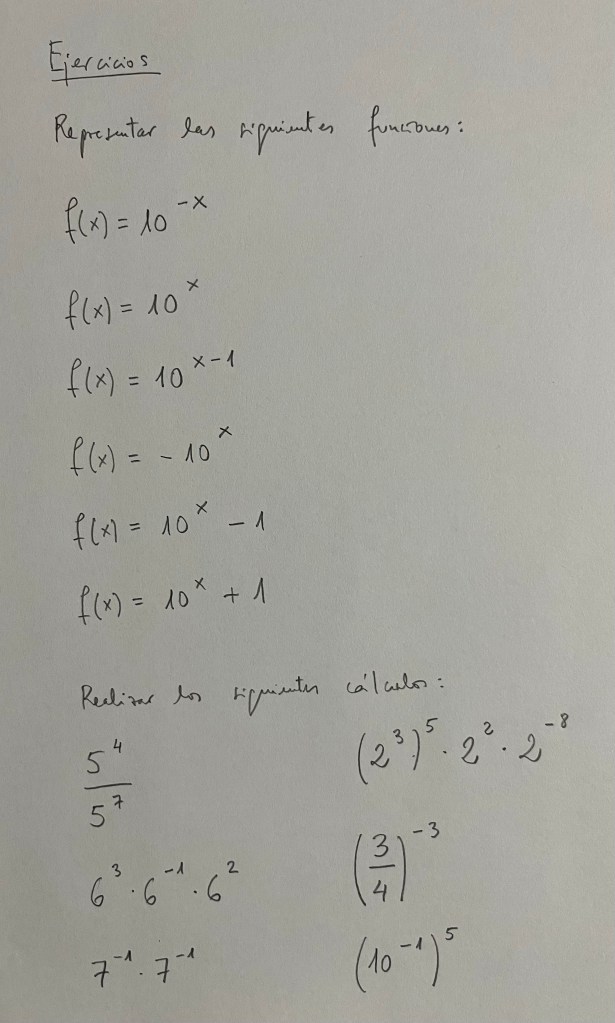 Ejercicios
Representar las siguientes funciones:
f(x) = 10^{-x}
f(x) = 10^{x}
f(x) = 10^{x-1}
f(x) = -10^{x}
f(x) = 10^{x} - 1
f(x) = 10^{x} + 1
Realizar los siguientes cálculos:
\frac{5^{4}}{5^{7}}    (2^{3})^{5} · 2^{2} · 2^{-8}
6^{3} · 6^{-1} · 6^{2}    (\frac{3}{4})^{-3}
7^{-1} · 7^{-1}    (10^{-1})^{5}